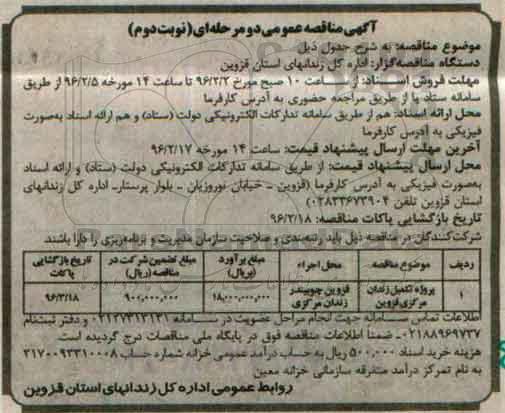 آگهی مناقصه عمومی دو مرحله ای (نوبت دوم)
موضوع مناقصه: به شرح جدول ذیل
دستگاه مناقصه گزار: اداره کل زندانهای استان قزوین
مهلت فروش اسناد: از ساعت ۱۰ صبح مورخ ۹۶/۲/۲ تا ساعت ۱۴ مورخه ۹۶/۲/۵ از طریق
سامانه ستاد یا از طریق مراجعه حضوری به آدرس کارفرما
محل ارائه اسناد: هم از طریق سامانه تدارکات الکترونیکی دولت (ستاد) و هم ارائه اسناد به‌صورت
فیزیکی به آدرس کارفرما
آخرین مهلت ارسال پیشنهاد قیمت: ساعت ۱۴ مورخه ۹۶/۲/۱۷
محل ارسال پیشنهاد قیمت: از طریق سامانه تدارکات الکترونیکی دولت (ستاد) و ارائه اسناد
به‌صورت فیزیکی به آدرس کارفرما (قزوین ـ خیابان نوروزیان ـ بلوار پرستار ـ اداره کل زندانهای
استان قزوین تلفن ۰۲۸۳۳۶۷۳۹۰۴)
تاریخ بازگشایی پاکات مناقصه: ۹۶/۲/۱۸
شرکت‌کنندگان در مناقصه ذیل باید رتبه‌بندی و صلاحیت سازمان مدیریت و برنامه‌ریزی را دارا باشند
ردیف موضوع مناقصه محل اجراء مبلغ برآورد (بریال) مبلغ تضمین شرکت در مناقصه (ریال) تاریخ بازگشایی پاکات
۱ پروژه تکمیل زندان مرکزی قزوین قزوین چوبیندر زندان مرکزی ۱۸,۰۰۰,۰۰۰,۰۰۰ ۹۰۰,۰۰۰,۰۰۰ ۹۶/۲/۱۸
اطلاعات تماس سامانه جهت انجام مراحل عضویت در سامانه ۰۲۱۲۷۳۱۳۱۳۱ و دفتر ثبت‌نام
۰۲۱۸۸۹۶۹۷۳۷ ـ ضمناً اطلاعات مناقصه فوق در پایگاه ملی مناقصات درج گردیده است.
هزینه خرید اسناد ۵۰۰,۰۰۰ ریال به حساب درآمد عمومی خزانه شماره حساب ۲۱۷۰۰۹۳۳۱۰۰۰۸
به نام تمرکز درآمد متفرقه سازمانی خزانه معین
روابط عمومی اداره کل زندانهای استان قزوین